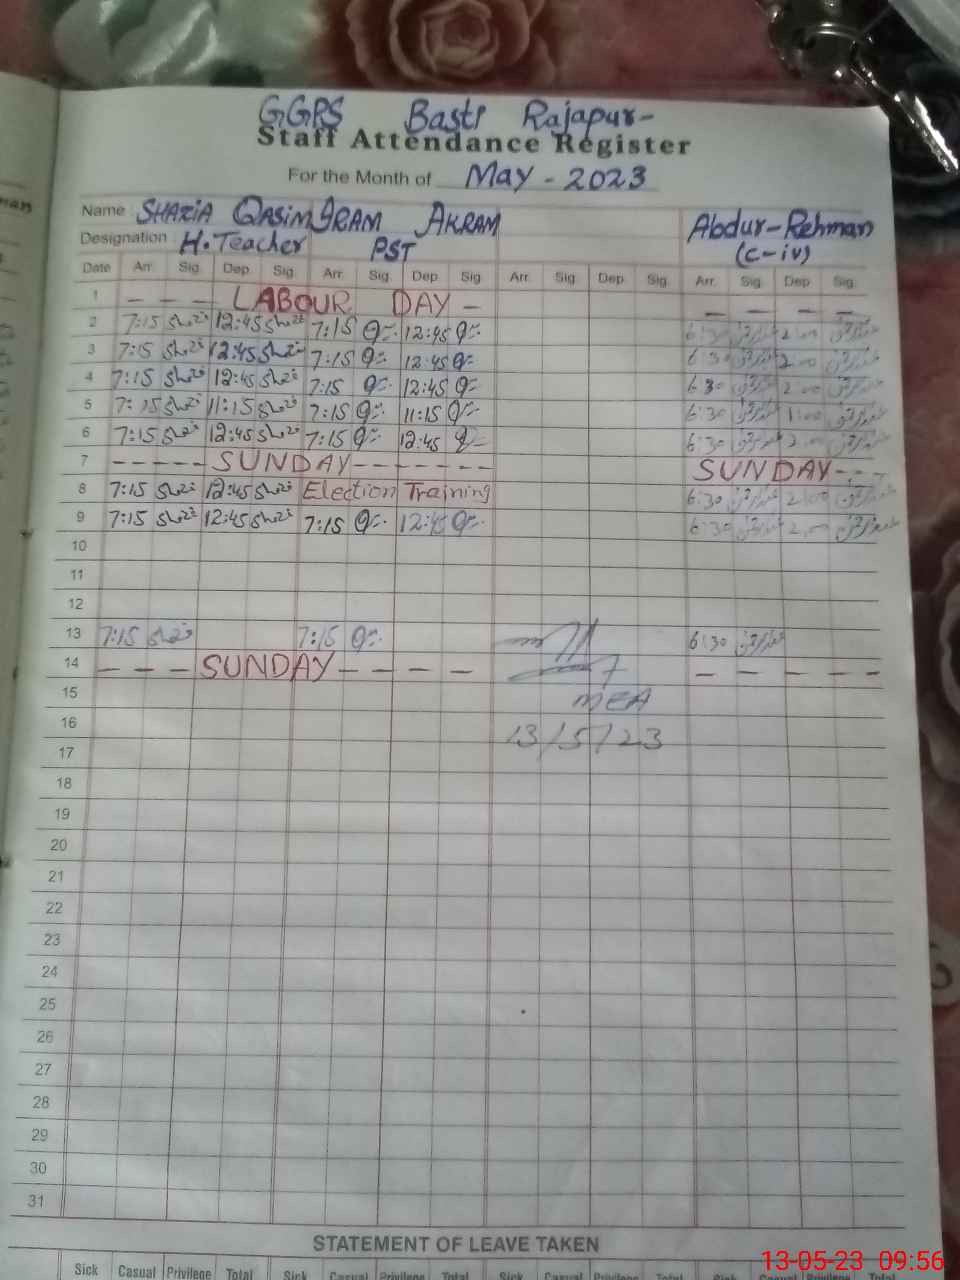 GGPS Basti Rajapur-
Staff Attendance Register
For the Month of May - 2023
Name SHAZIA QASIM IRAM AKRAM Abdur-Rehman
Designation H.Teacher PST (C-iv)
Date Arr. Sig. Dep. Sig. Arr. Sig. Dep. Sig. Arr. Sig. Dep. Sig. Arr. Sig. Dep. Sig.
1 - - - LABOUR DAY - - - - -
2 7:15 12:45 7:15 12:45 6:30 2:00
3 7:15 12:45 7:15 12:45 6:30 2:00
4 7:15 12:45 7:15 12:45 6:30 2:00
5 7:15 11:15 7:15 11:15 6:30 1:00
6 7:15 12:45 7:15 12:45 6:30 2:00
7 - - - - - SUNDAY - - - - - - - SUNDAY - - -
8 7:15 12:45 Election Training 6:30 2:00
9 7:15 12:45 7:15 12:45 6:30 2:00
10
11
12
13 7:15 7:15 6:30
14 - - - SUNDAY - - - - - - - -
15 MEA
16 13/5/23
17
18
19
20
21
22
23
24
25
26
27
28
29
30
31
STATEMENT OF LEAVE TAKEN
Sick Casual Privilege Total Sick Casual Privilege Total Sick Casual Privilege Total
13-05-23 09:56